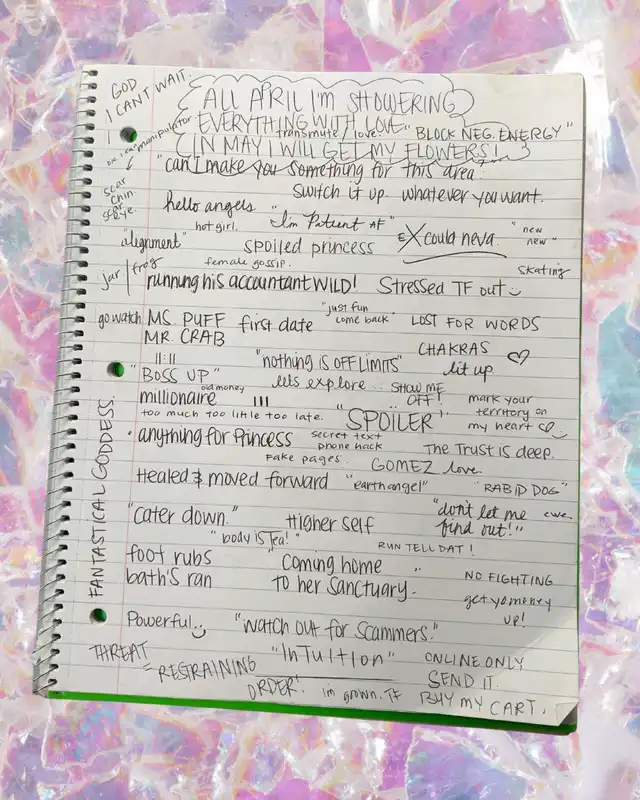 GOD
I CANT WAIT.
ALL APRIL I'M SHOWERING
EVERYTHING WITH LOVE.
transmute / love
"BLOCK NEG. ENERGY"
(IN MAY I WILL GET MY FLOWERS!
manipulator
scar
chin.
scar
eye.
"can I make you something for this area.
switch it up whatever you want.
hello angels.
hot girl.
"I'm Patient AF"
EX could neva.
"new
new"
"alignment"
spoiled princess
female gossip.
skating
jar / frog
running his accountant WILD!
Stressed TF out
go watch MS. PUFF
MR. CRAB
first date
"just fun
come back"
LOST FOR WORDS
11:11
"BOSS UP"
"nothing is OFF LIMITS"
CHAKRAS
lit up
old money
millionaire
111
lets explore..
SHOW ME
OFF!
mark your
territory on
my heart
too much too little too late.
"SPOILER"
anything for Princess
secret text
phone hack
Fake pages.
The Trust is deep.
GOMEZ love.
Healed & moved forward
"earth angel"
"RABID DOG"
FANTASTICAL GODDESS.
"cater down."
Higher self
"don't let me
find out!"
ewe
"body is Tea!"
RUN TELL DAT!
foot rubs
bath's ran
"Coming home
to her sanctuary.
"
NO FIGHTING
get yo money
up!
Powerful..
"watch out for scammers."
THREAT
= RESTRAINING
ORDER!
"InTuItIon"
im grown. TF
ONLINE ONLY
SEND IT.
BUY MY CART.